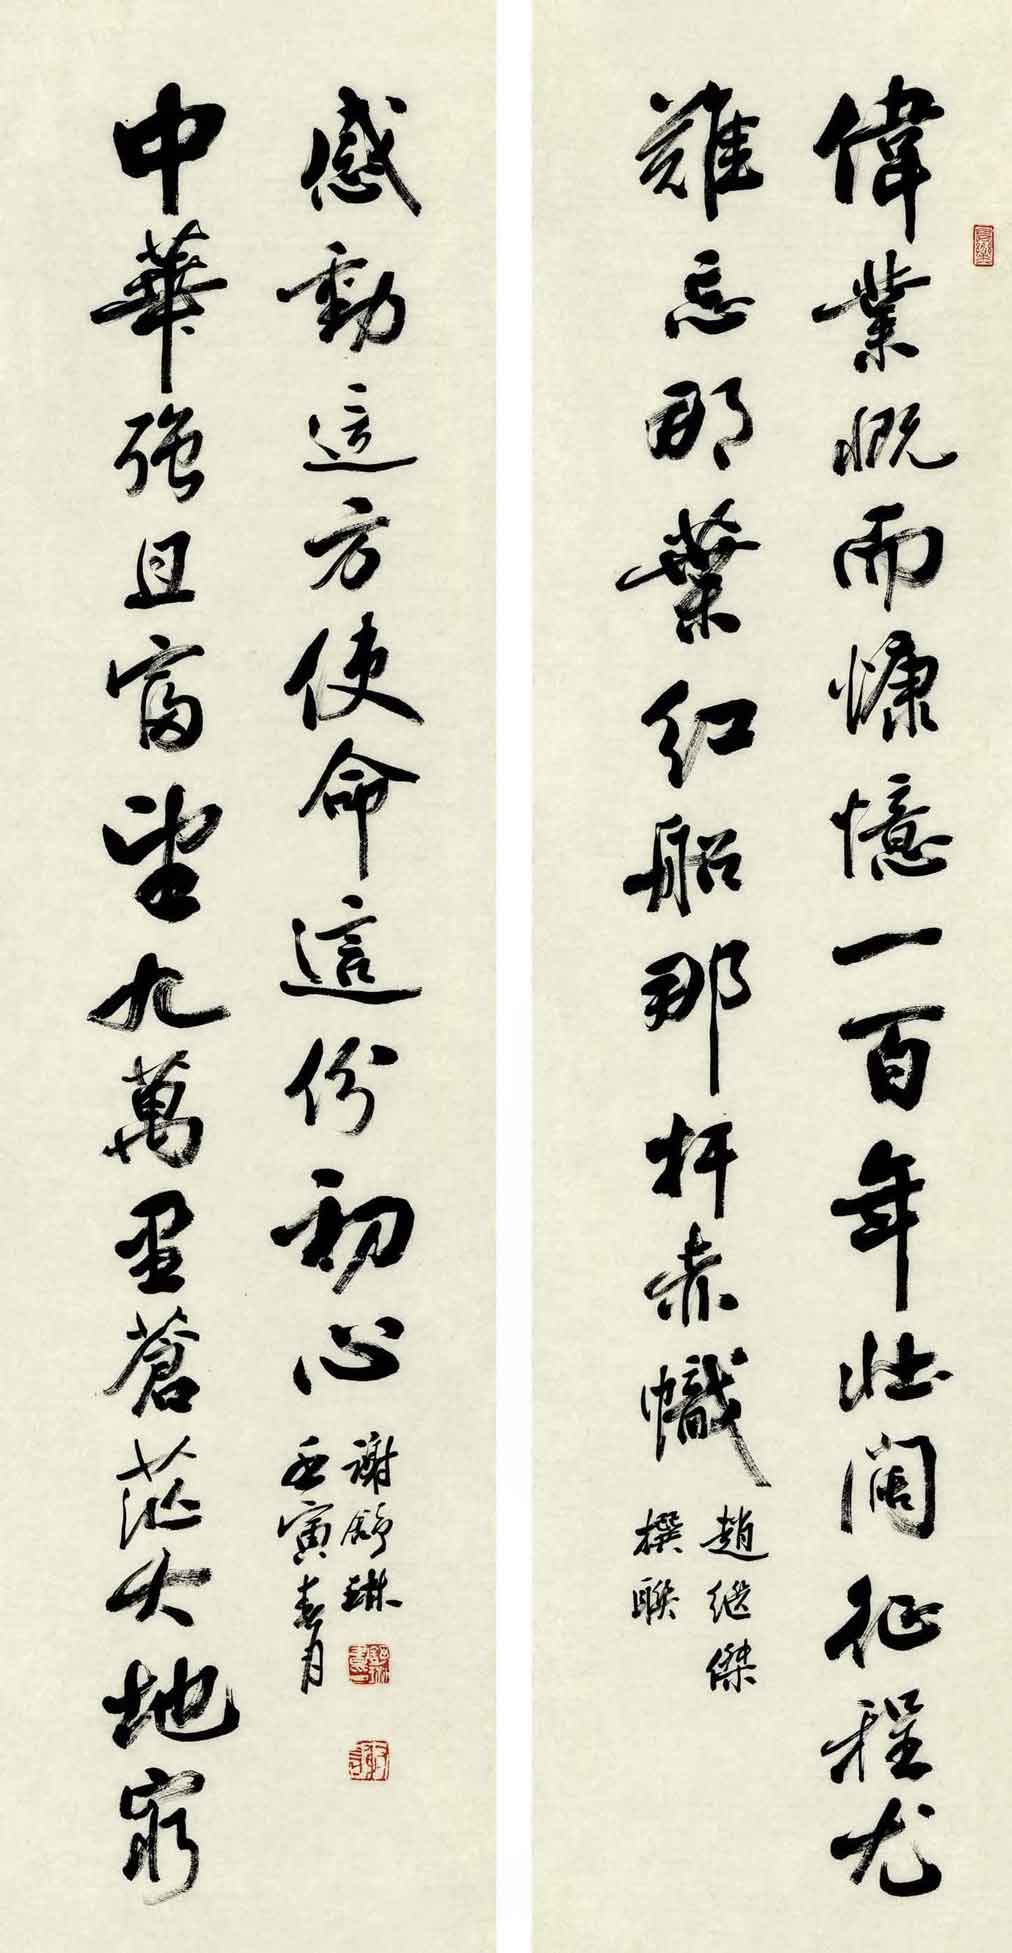 偉業慨而慷憶一百年壯闊征程尤
難忘那葉紅船那杆赤幟
趙继傑
撰聯
中華強且富望九萬里蒼茫大地最
感動這方使命這份初心
謝舒琳
壬寅春月